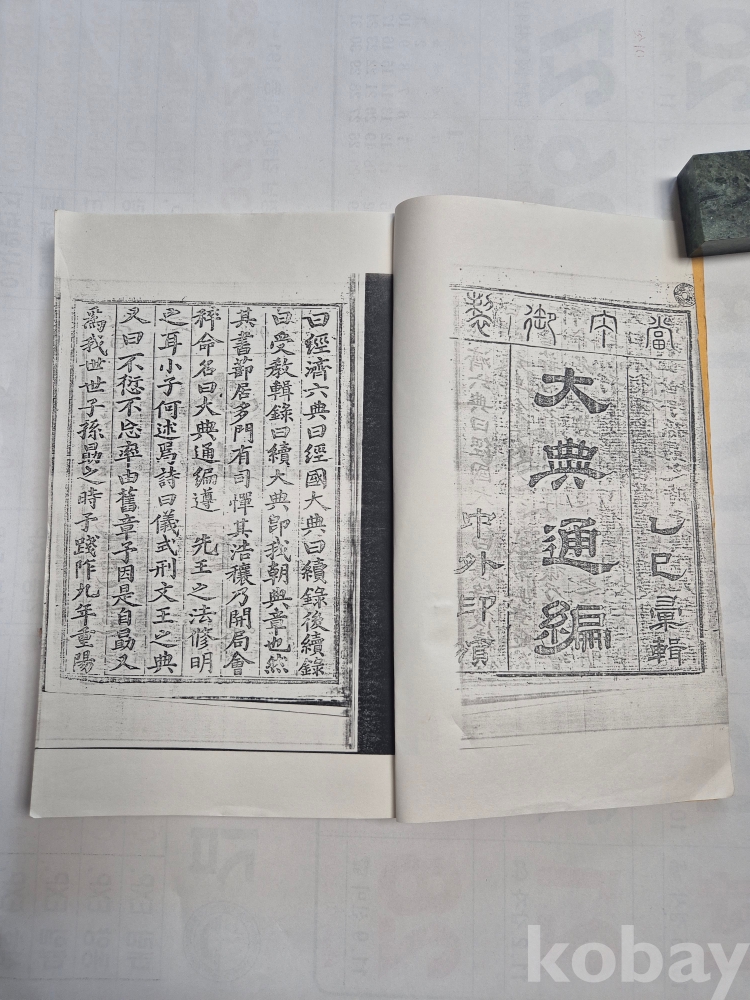 當宁御製
乙巳彙輯
大典通編
中外印頒
曰經濟六典曰經國大典曰續錄後續錄
曰受敎輯錄曰續大典卽我朝典章也然
其書節居多門有司憚其浩穰乃開局會
稡命名曰大典通編遵 先王之法修明
之耳小子何述焉詩曰儀式刑文王之典
又曰不愆不忘率由舊章予因是自勖又
爲我世世子孫勖之時予踐阼九年重陽
kobay